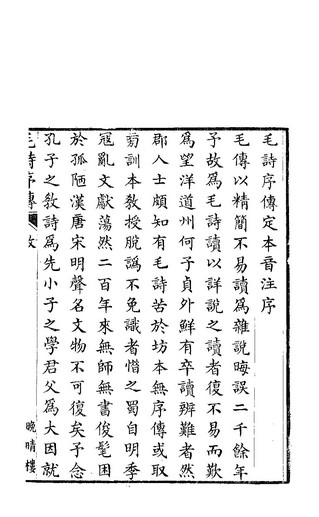 毛詩序傳定本音注序
毛傳以精簡不易讀爲雜說晦誤二千餘年
予故爲毛詩讀以詳說之讀者復不易而歎
爲望洋道州何子貞外鮮有卒讀辨難者然
郡人士頗知有毛詩苦於坊本無序傳或取
蒭訓本教授脫譌不免識者惜之蜀自明季
寇亂文獻蕩然二百年來無師無書俊髦困
於孤陋漢唐宋明聲名文物不可復矣予念
孔子之敎詩爲先小子之學君父爲大因就
毛詩序傳
晚晴樓